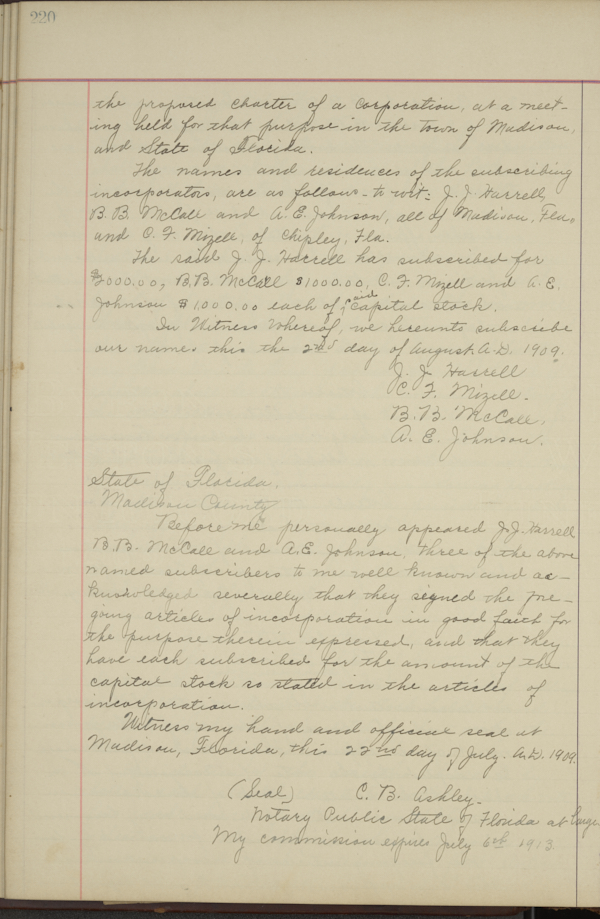 220
the proposed charter of a corporation, at a meet-
ing held for that purpose in the town of Madison,
and State of Florida.
The names and residences of the subscribing
incorporators, are as follows- to wit: J. J. Harrell,
B. B. McCall and A. E. Johnson, all of Madison, Fla,
and C. F. Mizell, of Chipley, Fla.
The said J. J. Harrell has subscribed for
000.00, B. B. McCall $1000.00, C. F. Mizell and A. E.
Johnson $1,000.00 each of said capital stock.
In Witness Whereof, we hereunto subscribe
our names this the 2nd day of August. A.D. 1909.
J. J. Harrell
C. F. Mizell.
B. B. McCall.
A. E. Johnson.
State of Florida,
Madison County
Before me personally appeared J. J. Harrell
B. B. McCall and A. E. Johnson, three of the above
named subscribers to me well known and ac-
knowledged severally that they signed the fore-
going articles of incorporation in good faith for
the purpose therein expressed, and that they
have each subscribed for the amount of the
capital stock so stated in the articles of
incorporation.
Witness my hand and official seal at
Madison, Florida, this 22nd day of July. A.D. 1909.
(Seal) C. B. Ashley.
Notary Public State of Florida at Large
My commission expires July 6th 1913.